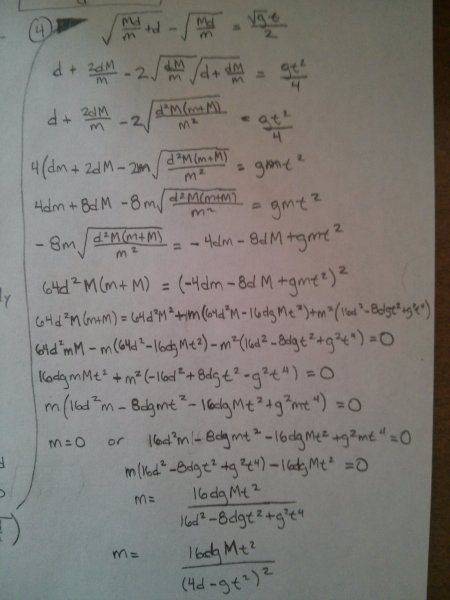 ④ √(Md/m + d) - √(Md/m) = √g t/2
d + 2dM/m - 2√(dM/m) √(d + dM/m) = gt²/4
d + 2dM/m - 2√(d²M(m+M)/m²) = gt²/4
4(dm + 2dM - 2m√(d²M(m+M)/m²) = gmt²
4dm + 8dM - 8m√(d²M(m+M)/m²) = gmt²
-8m√(d²M(m+M)/m²) = -4dm - 8dM + gmt²
64d²M(m+M) = (-4dm - 8dM + gmt²)²
64d²M(m+M) = 64d²M² + m(64d²M - 16dgMt²) + m²(16d² - 8dgt² + g²t⁴)
64d²mM - m(64d² - 16dgMt²) - m²(16d² - 8dgt² + g²t⁴) = 0
16dgmMt² + m²(-16d² + 8dgt² - g²t⁴) = 0
m(16d²m - 8dgmt² - 16dgMt² + g²mt⁴) = 0
m=0 or 16d²m - 8dgmt² - 16dgMt² + g²mt⁴ = 0
m(16d² - 8dgt² + g²t⁴) - 16dgMt² = 0
m = 16dgMt²/(16d² - 8dgt² + g²t⁴)
m = 16dgMt²/(4d - gt²)²